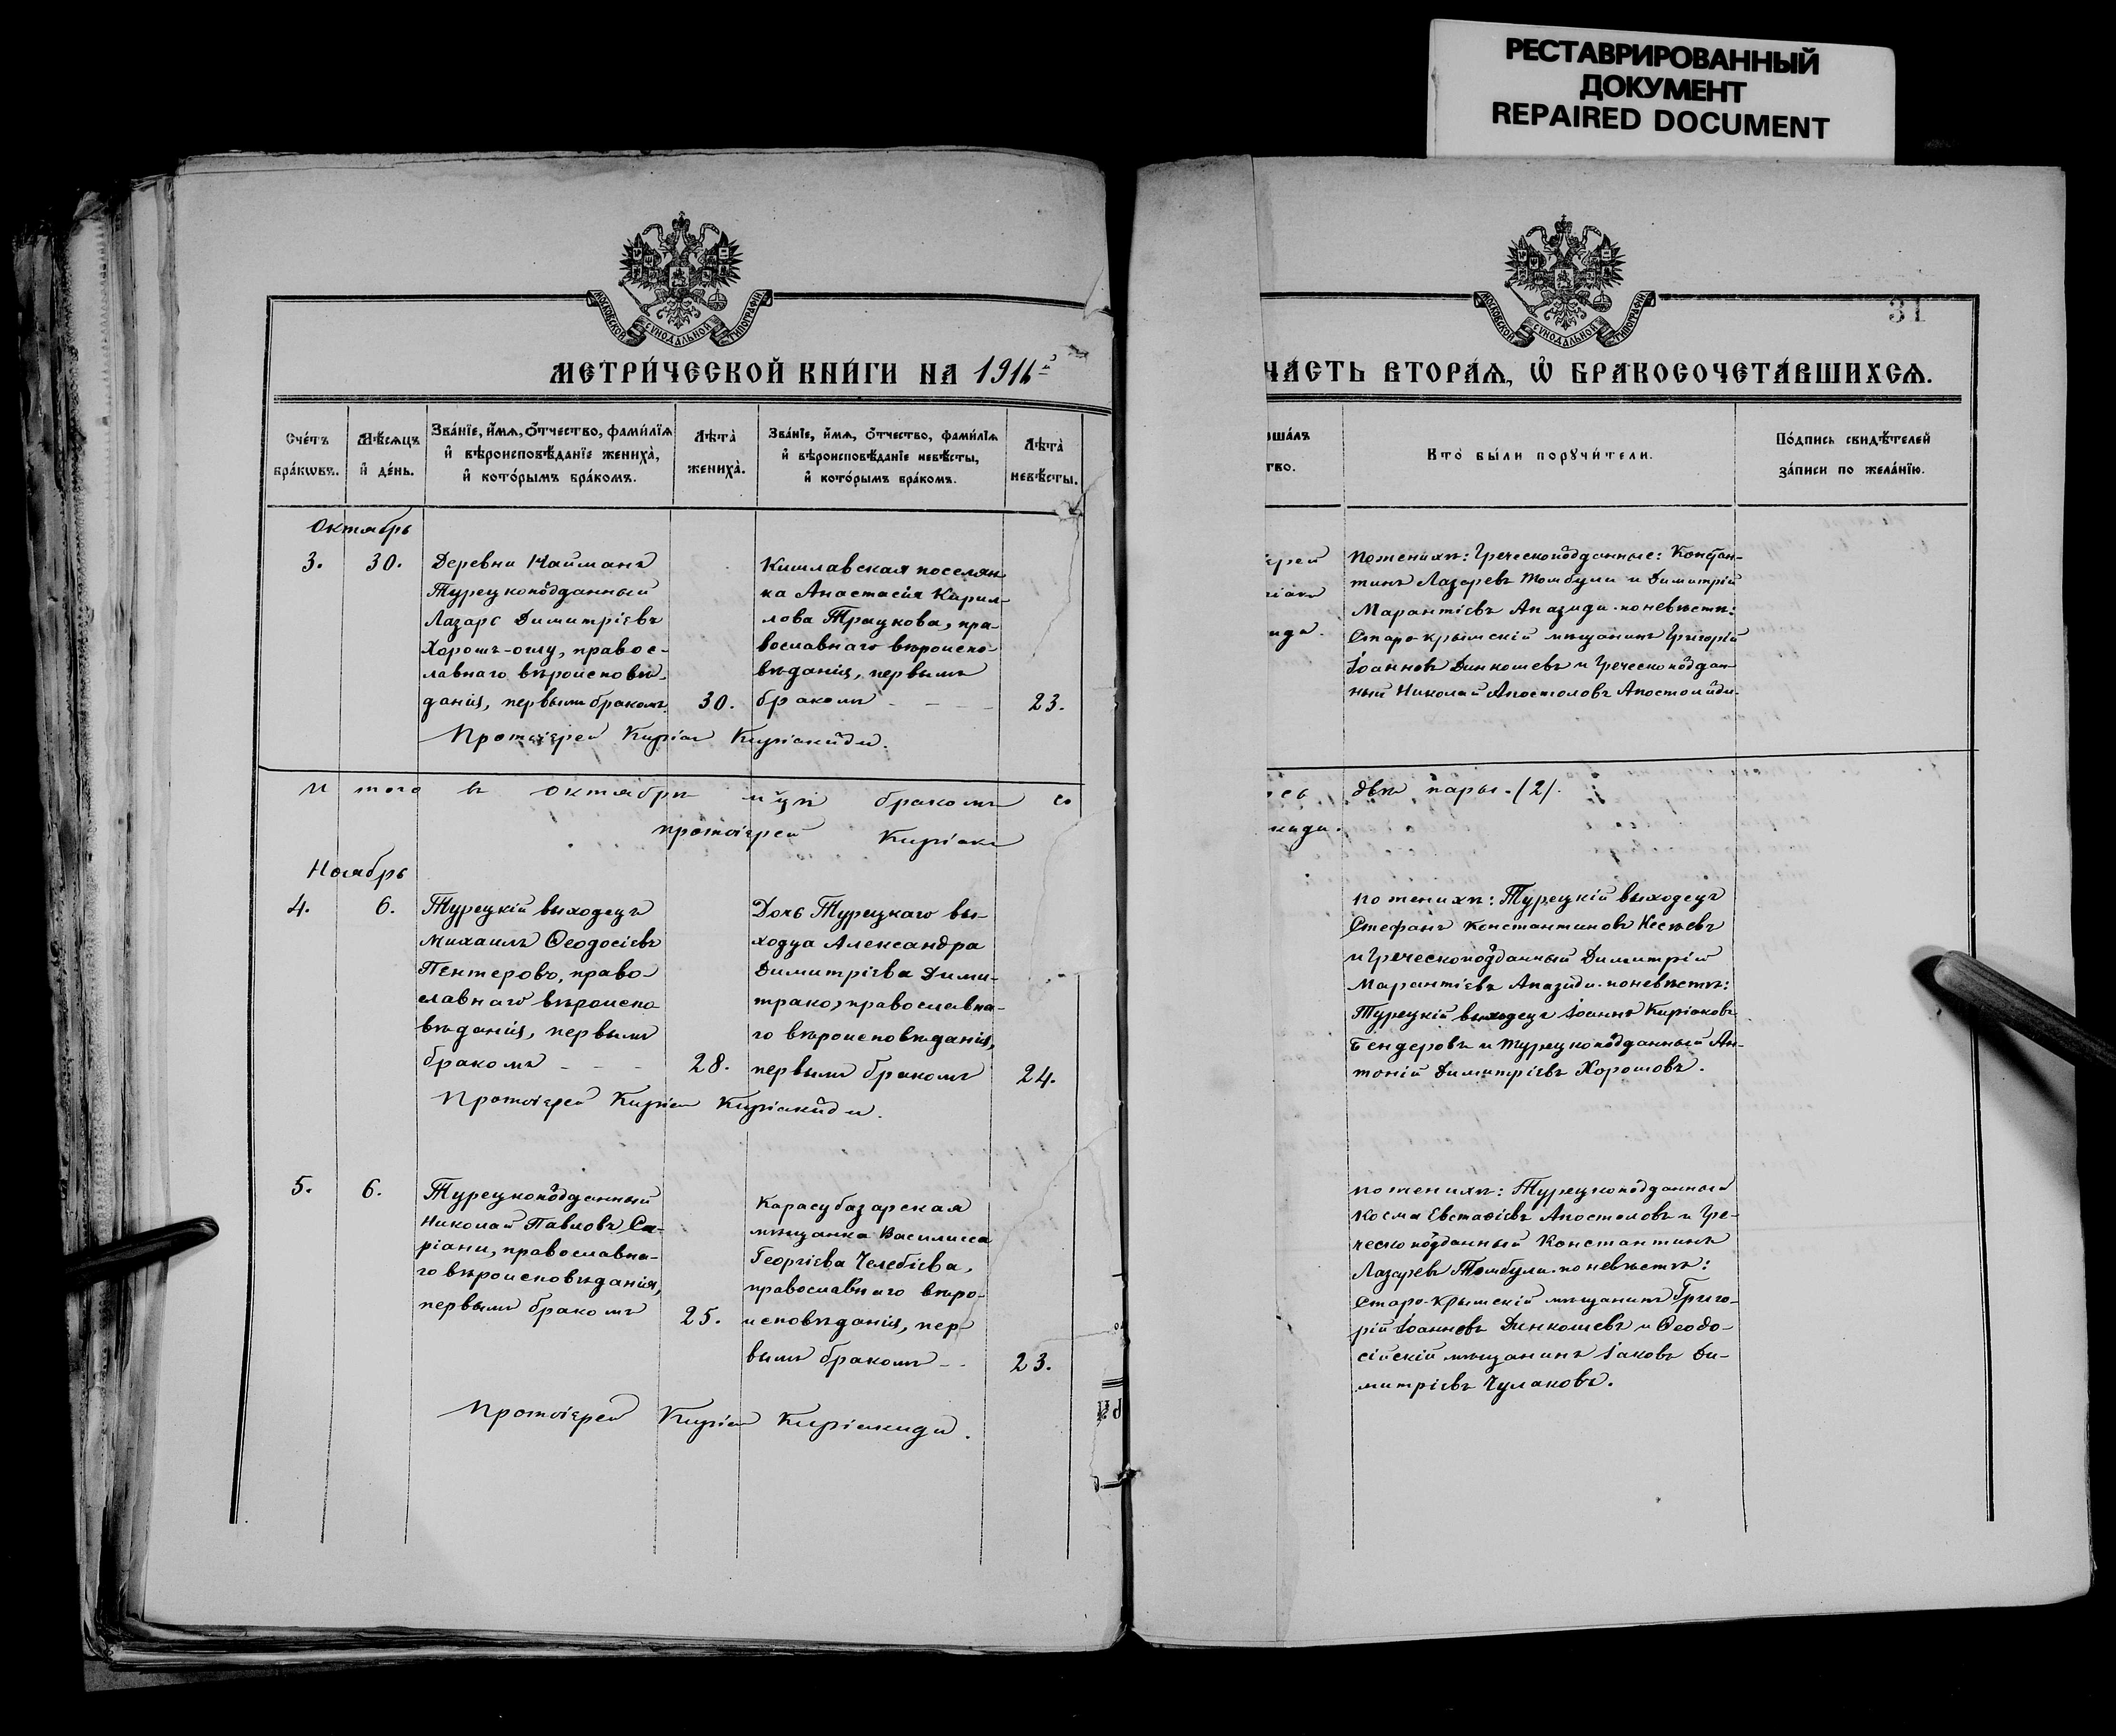 РЕСТАВРИРОВАННЫЙ
ДОКУМЕНТ
REPAIRED DOCUMENT
МОСКОВСКОЙ СѴНОДАЛЬНОЙ ТИПОГРАФІИ
МЕТРИ́ЧЕСКОЙ КНИ́ГИ НА 1916й
Сче́тъ
бра́кωвъ.
Мѣ́сяцъ
и҆ де́нь.
Зва́нїе, и҆́мѧ, ѻ҆́тчество, фами́лїѧ
и҆ вѣроисповѣ́данїе жениха̀,
и҆ кото́рымъ бра́комъ.
Лѣта̀
жениха̀.
Зва́нїе, и҆́мѧ, ѻ҆́тчество, фами́лїѧ
и҆ вѣроисповѣ́данїе невѣ́сты,
и҆ кото́рымъ бра́комъ.
Лѣта̀
невѣ́сты.
Октябрь
3.
30.
Деревни Найманъ
Турецкоподданный
Лазарь Димитріевъ
Хорошъ-оглу, правос-
лавнаго вѣроисповѣ-
данія, первымъ бракомъ.
30.
Кишлавская поселян-
ка Анастасія Кирил-
лова Трацкова, пра-
вославнаго вѣроиспо-
вѣданія, первымъ
бракомъ - - -
23.
Протоіерей Киріакъ Киріакиди.
И того в октябрѣ м-цѣ бракомъ со
протоіерей Киріакъ
Ноябрь
4.
6.
Турецкій выходецъ
Михаилъ Ѳеодосіевъ
Пентеровъ, право-
славнаго вѣроиспо
вѣданія, первымъ
бракомъ - - -
28.
Дочь Турецкаго вы-
ходца Александра
Димитріева Дими-
трако, православна-
го вѣроисповѣданія,
первымъ бракомъ
24.
Протоіерей Киріакъ Киріакиди.
5.
6.
Турецкоподданный
Николай Павловъ Са-
ріани, православна-
го вѣроисповѣданія,
первымъ бракомъ
25.
Карасубазарская
мѣщанка Василисса
Георгіева Челебіева,
православнаго вѣро-
исповѣданія, пер-
вымъ бракомъ - -
23.
Протоіерей Киріакъ Киріакиди.
МОСКОВСКОЙ СѴНОДАЛЬНОЙ ТИПОГРАФІИ
31
ЧА́СТЬ ВТОРА́Ѧ, Ѽ БРАКОСОЧЕТА́ВШИХСѦ.
ша́лъ
тво.
Кто̀ бы́ли порꙋчи́тели.
По́дпись свидѣ́телей
за́писи по жела́нїю.
ерей
ріакъ
иди.
По женихѣ: Греческоподданные: Констан-
тинъ Лазаревъ Томбули и Димитрій
Марантіевъ Апазиди. по невѣстѣ:
Старо-крымскій мѣщанинъ Григорій
Іоанновъ Динкошевъ и Греческоподдан
ный Николай Апостоловъ Апостолиди.
сь двѣ пары. (2).
киди.
По женихѣ: Турецкій выходецъ
Стефанъ Константиновъ Несѣевъ
и Греческоподданный Димитрій
Марантіевъ Апазиди. по невѣстѣ:
Турецкій выходецъ Іоаннъ Киріаковъ
Бендеровъ и Турецкоподданный Ан-
тоній Димитріевъ Хорошовъ.
По женихѣ: Турецкоподданный
Косма Евстаѳіевъ Апостоловъ и Гре-
ческоподданный Константинъ
Лазаревъ Томбули. по невѣстѣ:
Старо-Крымскій мѣщанинъ Григо-
рій Іоанновъ Динкошевъ и Ѳеодо-
сійскій мѣщанинъ Іаковъ Ди-
митріевъ Чулаковъ.